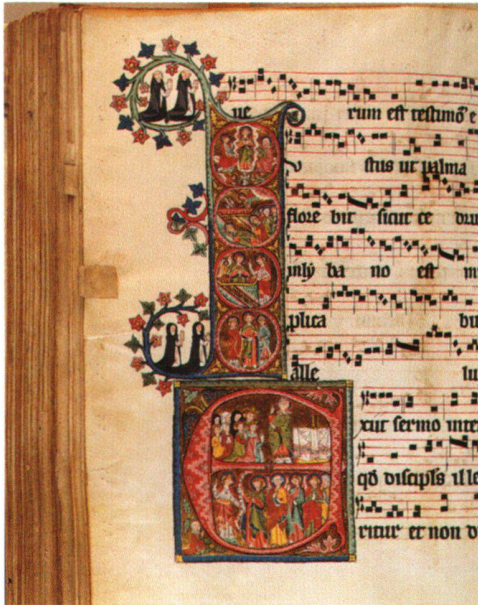 ue rum est testimō e
stus ut palma
flore bit sicut ce dru
in ly ba no est m
plica bi
alle lu
xiit sermo inter
qd discipls ille
ritur et non d